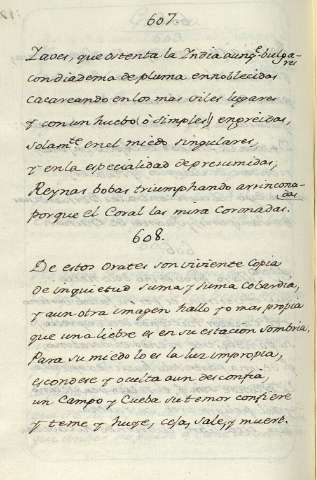 607.
Zaves, que ostenta la India aunq.e bulgares
con diadema de pluma ennoblecidas
cacareando en los mas viles lugares
y con un huebo (ò simples) engreidas,
solam.te en el miedo singulares,
y en la especialidad de presumidas,
Reynas bobas triumphando arrinconadas
porque el Coral las mira Coronadas.
608.
De estos Orates son viviente Copia
de inquietud suma y suma Cobardia,
y aun otra imagen hallo yo mas propia
que una liebre es en su estacion sombria.
Para su miedo lo es la luz impropia,
escondese y oculta aun desconfia
un Campo y Cueba su temor confiere
y teme y huye, cesa, sale, y muere.